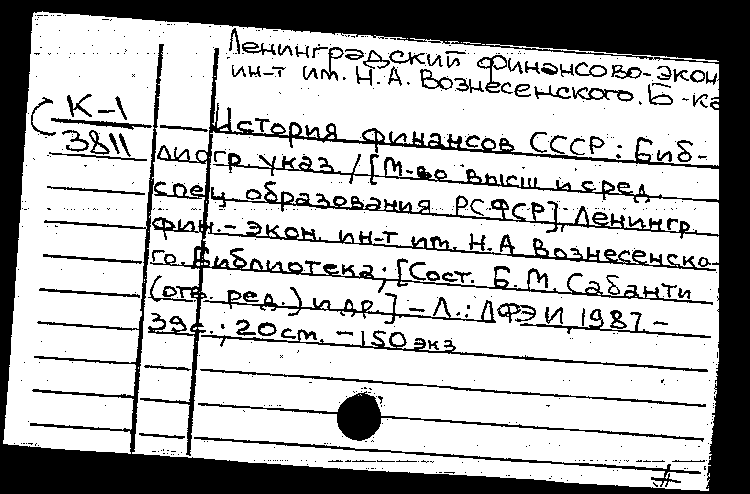 Ленинградский финансово-экон.
ин-т им. Н.А. Вознесенского. Б-ка
К-1
3811
История финансов СССР : Биб-
лиогр. указ. / [М-во высш и сред.
спец образования РСФСР]; Ленингр.
фин.-экон. ин-т им. Н.А Вознесенско-
го. Библиотека; [Сост. Б.М. Сабанти
(отв. ред.) и др.]. – Л.: ЛФЭИ, 1987. –
39с.; 20см. – 150 экз